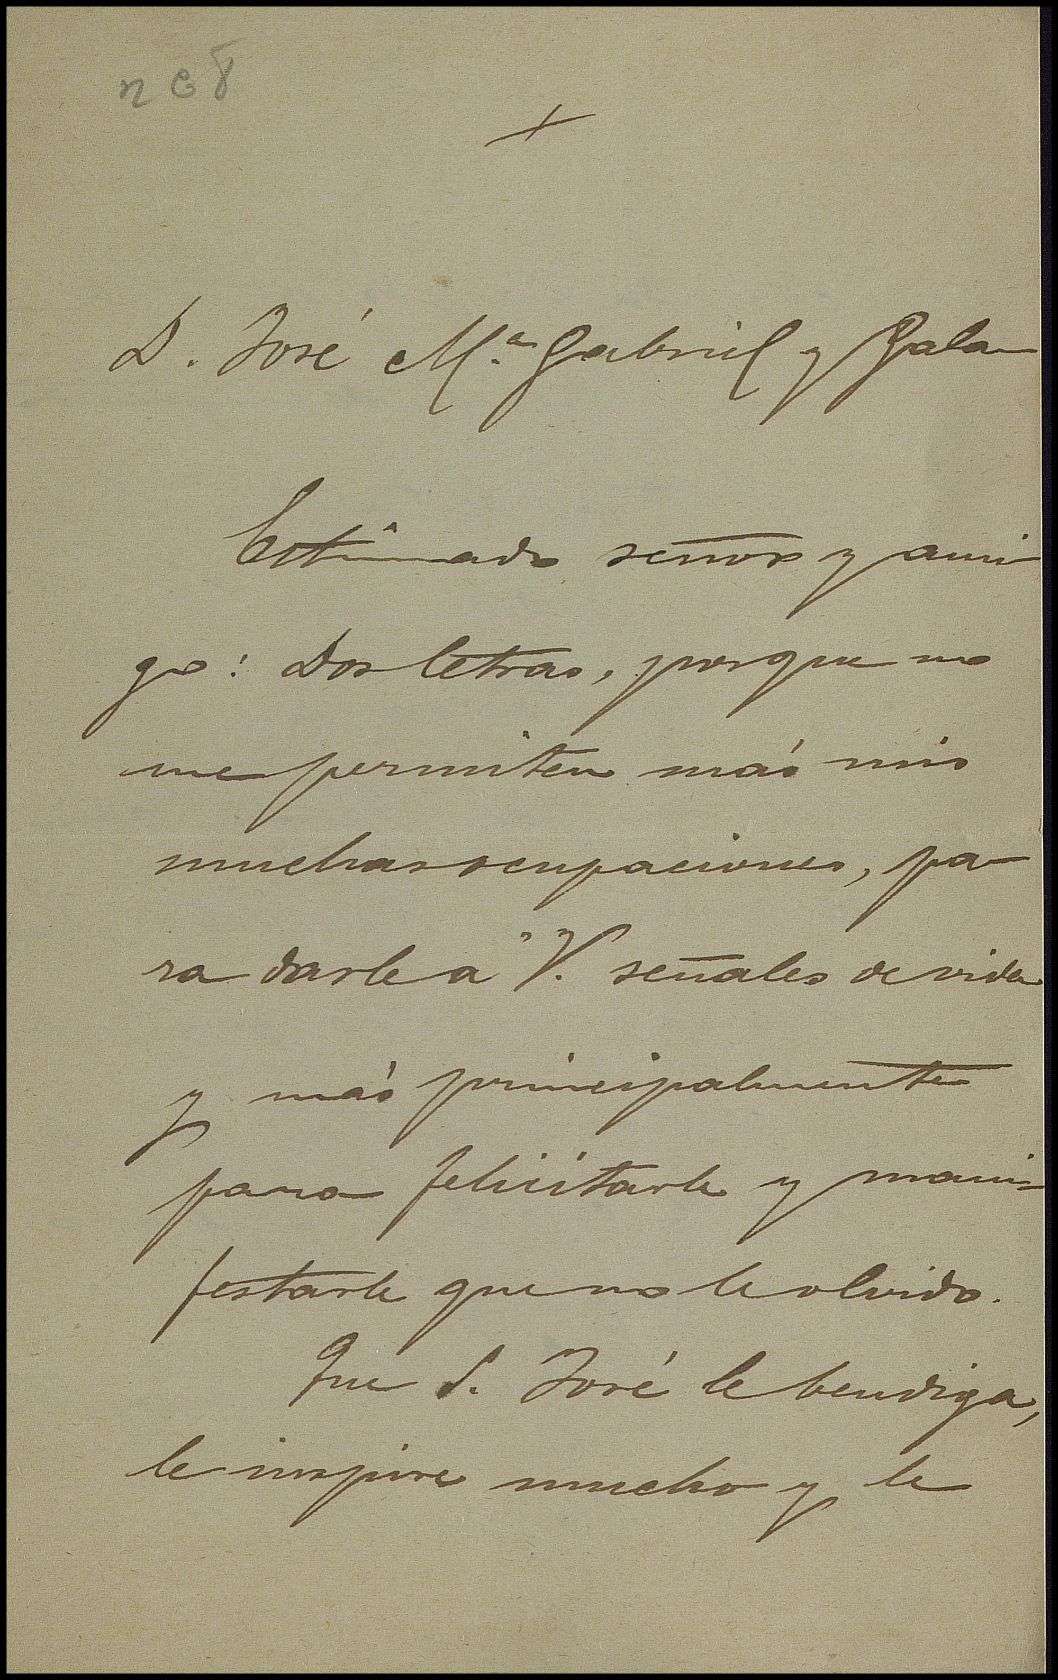 +
D. José M.ª Gabriel y Galan
Estimado señor y ami
go: Dos letras, porque no
me permiten más mis
muchas ocupaciones, pa
ra darle a V. señales de vida
y más principalmente
para felicitarle y mani-
festarle que no le olvido.
Que S. José le bendiga,
le inspire mucho y le